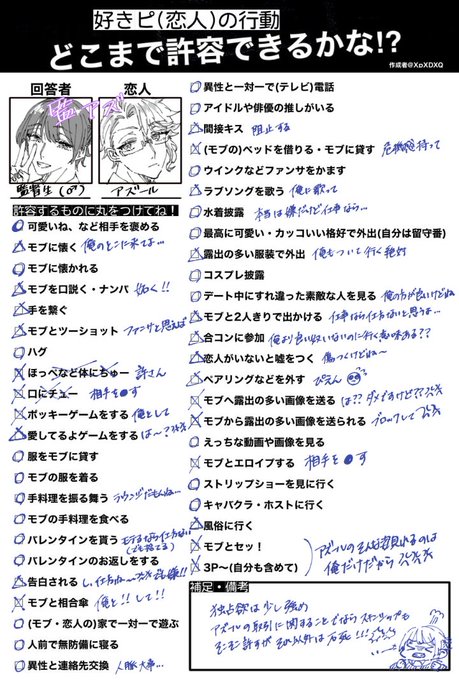 好きピ(恋人)の行動
どこまで許容できるかな!?
作成者@XpXDXQ
回答者
恋人
監督生(♂)
アズール
許容するものに丸をつけてね!
可愛いね、など相手を褒める
モブに懐く 俺のとこに来てよ…
モブに懐かれる
モブを口説く・ナンパ 妬く!!
手を繋ぐ
モブとツーショット ファンサと思えば
ハグ
ほっぺなど体にちゅー 許さん
口にチュー 相手を●す
ポッキーゲームをする 俺として
愛してるよゲームをする は〜?
服をモブに貸す
モブの服を着る
手料理を振る舞う ラウンジだもんね…
モブの手料理を食べる
バレンタインを貰う
バレンタインのお返しをする
告白される
モブと相合傘 俺と!!して!!
(モブ・恋人の)家で一対一で遊ぶ
人前で無防備に寝る
異性と連絡先交換 人脈大事…
異性と一対一で(テレビ)電話
アイドルや俳優の推しがいる
間接キス 阻止する
(モブの)ベッドを借りる・モブに貸す 危機感持って
ウインクなどファンサをかます
ラブソングを歌う 俺に歌って
水着披露 本当は嫌だけど仕事なら…
最高に可愛い・カッコいい格好で外出(自分は留守番)
露出の多い服装で外出 俺もついて行く絶対
コスプレ披露
デート中にすれ違った素敵な人を見る 俺の方が良いけどね
モブと2人きりで出かける 仕事なら仕方ないと思うよ…
合コンに参加 俺より良い奴いないのに行く意味ある??
恋人がいないと嘘をつく 傷つくけどね〜
ペアリングなどを外す ぴえん
モブへ露出の多い画像を送る は??ダメですけど??
モブから露出の多い画像を送られる ブロックして
えっちな動画や画像を見る
モブとエロイプする 相手を●す
ストリップショーを見に行く
キャバクラ・ホストに行く
風俗に行く
モブとセッ!
3P〜(自分も含めて)
アズールのそんな姿見れるのは
俺だけだから
補足・備考
独占欲は少し強め
アズールの取引に関することでなら スキンシップも
モニモニ許すが それ以外は石死!!!